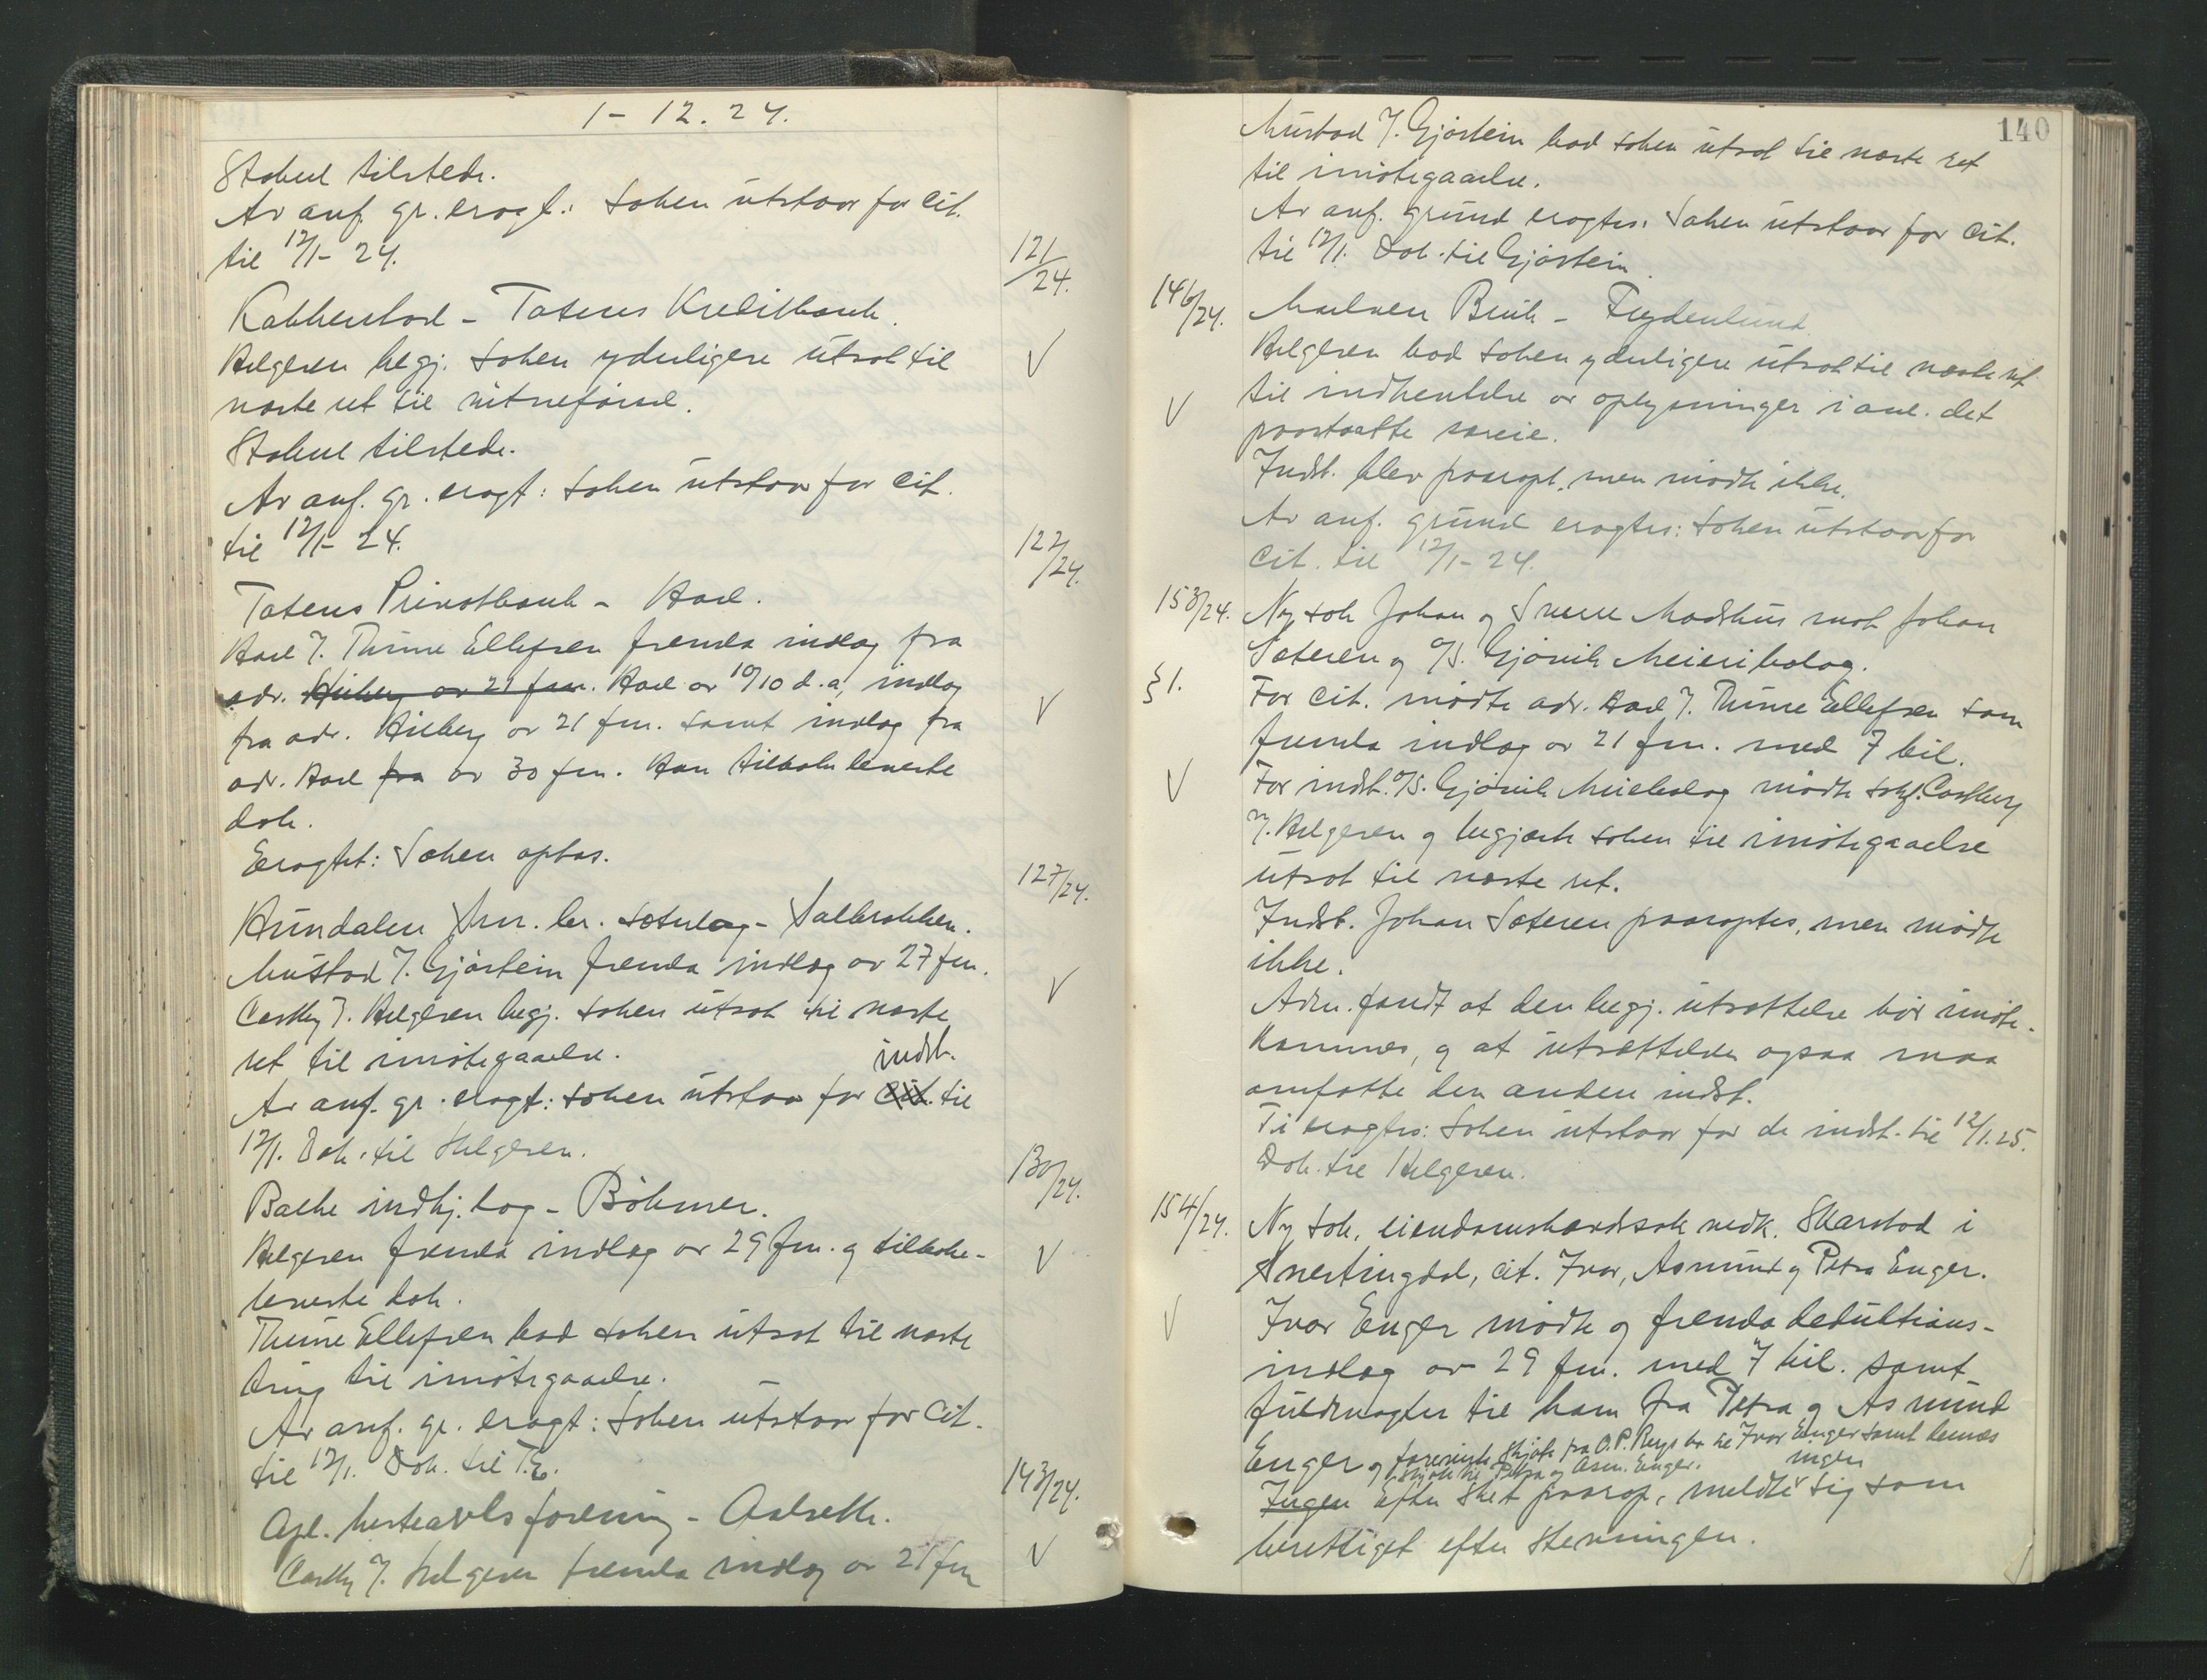 1 - 12. 24.
Stabul tilstede.
Av anf. gr. eragt.: Saken utstaar for cit.
til 12/1- 24.
121/24.
Kabberstad - Totens Kreditbank.
Helgesen begj. saken yderligere utsat til
næste ret til vitneførsel.
Stabul tilstede.
Av anf. gr. eragt: Saken utstaar for cit.
til 12/1- 24.
122/24.
Totens Privatbank - Hoel.
Hoel v. Thime Ellefsen fremla indlæg fra
adv. Huberg av 21 fm. Hoel av 10/10 d.a, indlæg
fra adv. Huberg av 21 fm. samt indlæg fra
adv. Hoel fra av 30 fm. Han tilbakeleverte
dok.
Eragtet: Saken optas.
127/24.
Hundalen sæterlag - Sælbrakken.
Mustad v. Gjøstein fremla indlæg av 27 fm.
Castberg v. Helgesen begj. saken utsat til næste
ret til imøtegaaelse.
indst.
Av anf. gr. eragt: Saken utstaar for cit. til
12/1. Dok. til Helgesen.
130/24.
Balke indkj. lag - Böhmer.
Helgesen fremla indlæg av 29 fm. og tilbake-
leverte dok.
Thime Ellefsen bad saken utsat til næste
ting til imøtegaaelse.
Av anf. gr. eragt: Saken utstaar for cit.
til 12/1. Dok. til T.E.
143/24.
Opl. hesteavlsforening - Aalseth.
Castbg v. Helgesen fremla indlæg av 21 fm
140
Mustad v. Gjøstein bad saken utsat til næste ret
til imøtegaaelse.
Av anf. grund eragtes: Saken utstaar for cit.
til 12/1. Dok. til Gjøstein.
146/24.
Bruk - Frydenlund.
Helgesen bad saken yderligere utsat til næste ret
til indhentelse av oplysninger i anl. det
paastaatte særeie.
Indst. blev paaropt, men mødte ikke.
Av anf. grund eragtes: Saken utstaar for
cit. til 12/1- 24.
153/24.
Ny sak Johan og Sverre Madshus mot Johan
Sæteren og A/S. Gjøvik Meieribolag.
§ 1.
For cit. mødte adv. Hoel v. Thime Ellefsen som
fremla indlæg av 21 fm. med 7 bil.
For indst. A/S. Gjøvik Meiebolag mødte sakf. Castberg
v. Helgesen og begjærte saken til imøtegaaelse
utsat til næste ret.
Indst. Johan Sæteren paaroptes, men mødte
ikke.
Adm. fandt at den begj. utsættelse bør imøte-
kommes, og at utsættelsen ogsaa maa
omfatte den anden indst.
Ti eragtes: Saken utstaar for de indst. til 12/1. 25.
Dok. til Helgesen.
154/24.
Ny sak, eiendomshævdssak vedk. Skarstad i
Snertingdal, cit. Ivar, Asmund og Petra Enger.
Ivar Enger mødte og fremla deduktions-
indlæg av 29 fm. med 7 bil. samt
fuldmagter til ham fra Petra og Asmund
Enger og forevist skjøte fra O. P. til Ivar Enger samt dennes
skjøte til Petra og Asm. Enger.
ingen
Ingen Efter sket paarop, meldte sig som
berettiget efter stevningen.